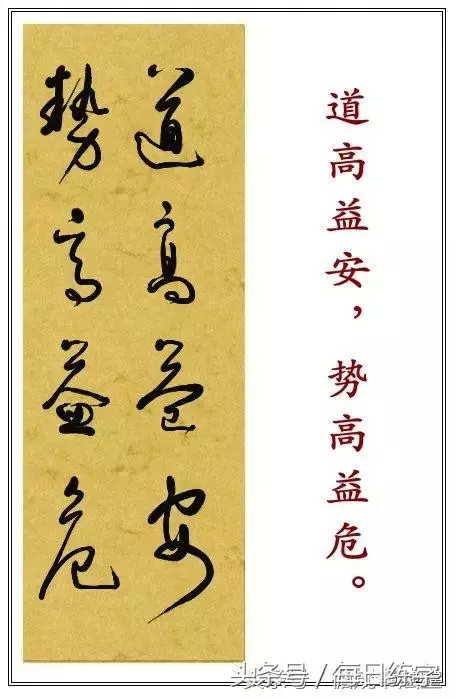 道高益安
勢高益危
道高益安，势高益危。
头条号／每日练字